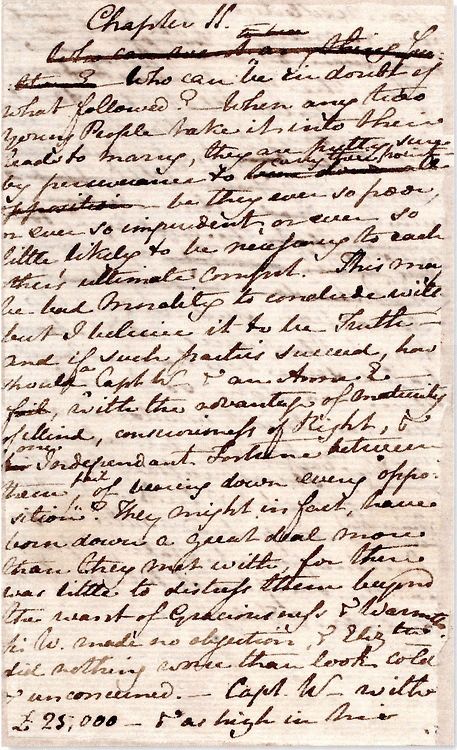 Chapter 11.
Who can be in doubt of
what followed? When any two
Young People take it into their
heads to marry, they are pretty sure
by perseverance to carry their point
be they ever so poor,
or ever so imprudent, or ever so
little likely to be necessary to each
other's ultimate comfort. This may
be bad Morality to conclude with
but I beleive it to be Truth—
and if such parties succeed, how
should a Capt W— & an Anne E—
fail, with the advantage of maturity
of Mind, consciousness of Right, &
one Independant Fortune between
them, fail of bearing down every oppo-
sition? They might in fact, have
born down a great deal more
than they met with, for there
was little to distress them beyond
the want of Graciousness & Warmth.
Sr W. made no objection, & Elizth
did nothing worse than look cold
& unconcerned.— Capt. W— with
£ 25,000— & as high in his